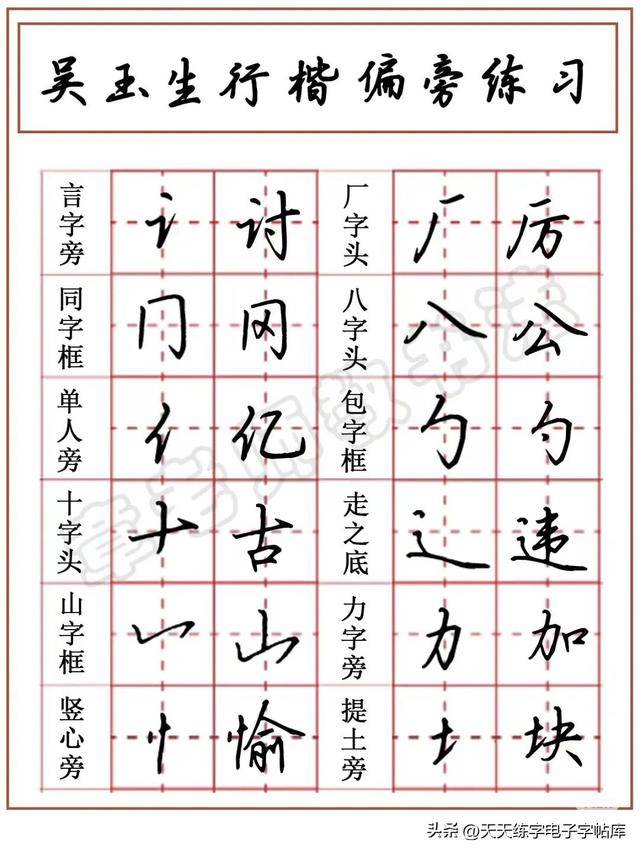 吴玉生行楷偏旁练习
言字旁 讠 讨 厂字头 厂 厉
同字框 冂 冈 八字头 八 公
单人旁 亻 亿 包字框 勹 勺
十字头 十 古 走之底 辶 违
山字框 凵 山 力字旁 力 加
竖心旁 忄 愉 提土旁 土 块
头条@天天练字电子字帖库